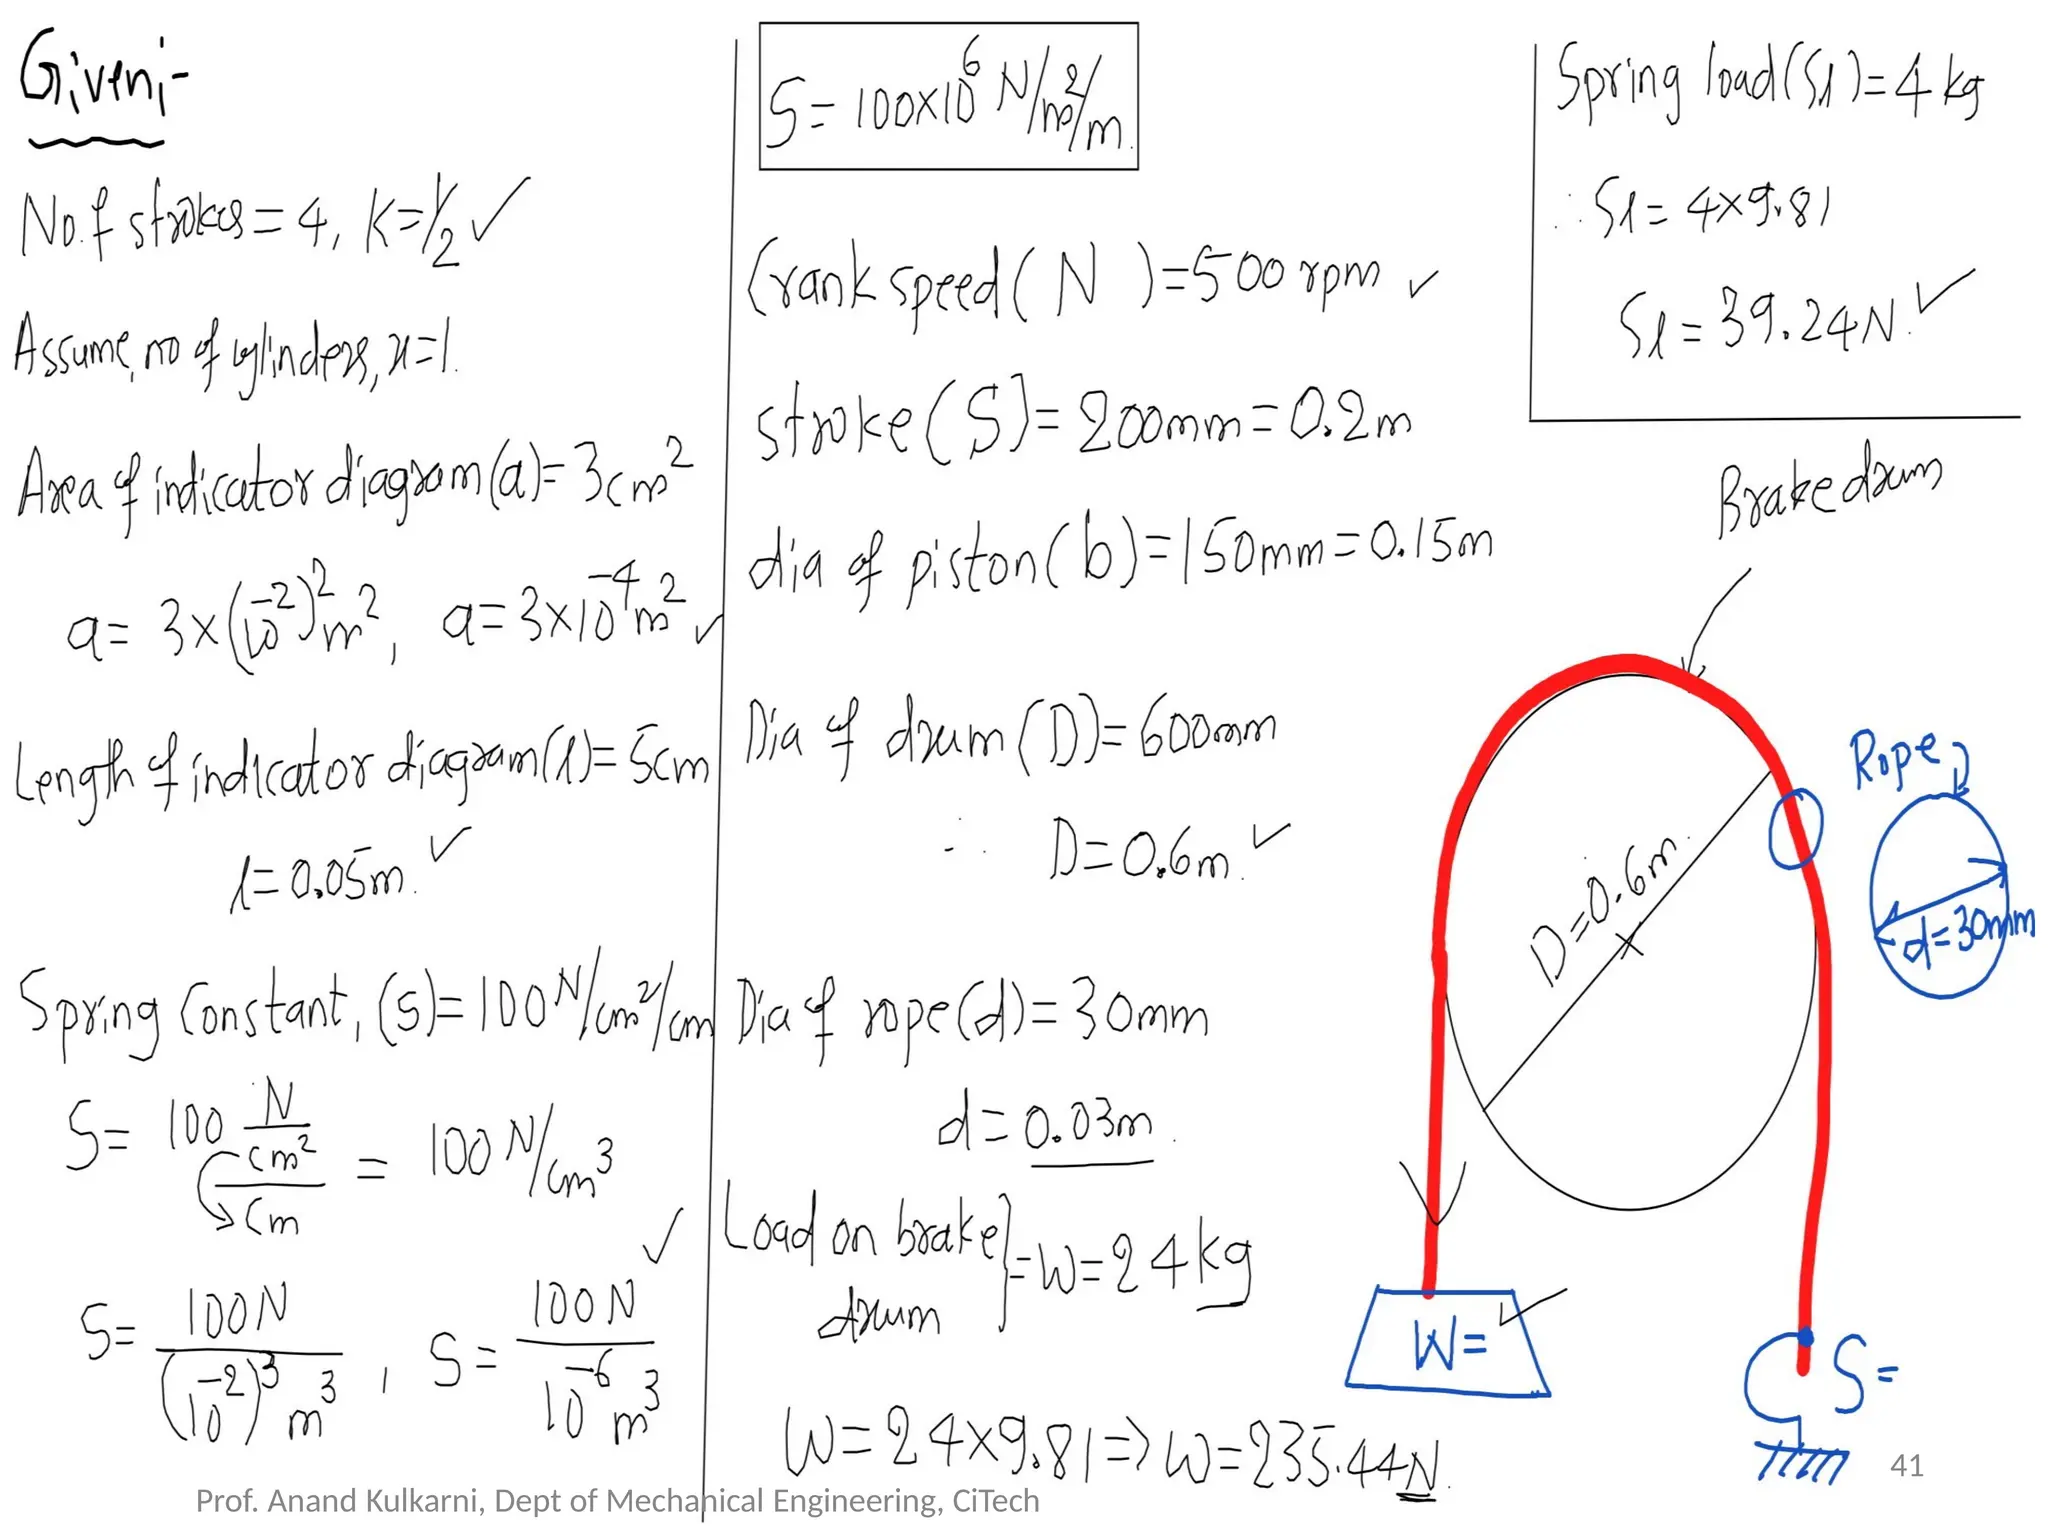 Given:-
No. of strokes = 4, K = 1/2 ✓
Assume, no of cylinders, x=1.
Area of indicator diagram (a) = 3cm²
a = 3×(10⁻²)² m², a = 3×10⁻⁴ m² ✓
Length of indicator diagram (l) = 5cm
l = 0.05m. ✓
Spring Constant, (S) = 100 N/cm²/cm
S = 100 N/cm²/cm = 100 N/cm³
S = 100N/(10⁻²)³ m³, S = 100N/10⁻⁶ m³ ✓
S = 100×10⁶ N/m²/m.
Crank speed (N) = 500 rpm ✓
stroke (S) = 200mm = 0.2m
dia of piston (b) = 150mm = 0.15m
Dia of drum (D) = 600mm
∴ D = 0.6m. ✓
Dia of rope (d) = 30mm
d = 0.03m.
Load on brake
drum } = W = 24 kg
W = 24×9.81 => W = 235.44N.
Spring load (Sl) = 4 kg
∴ Sl = 4×9.81
Sl = 39.24N. ✓
Brake drum
Rope
D = 0.6m.
d = 30mm
W =
S =
41
Prof. Anand Kulkarni, Dept of Mechanical Engineering, CiTech